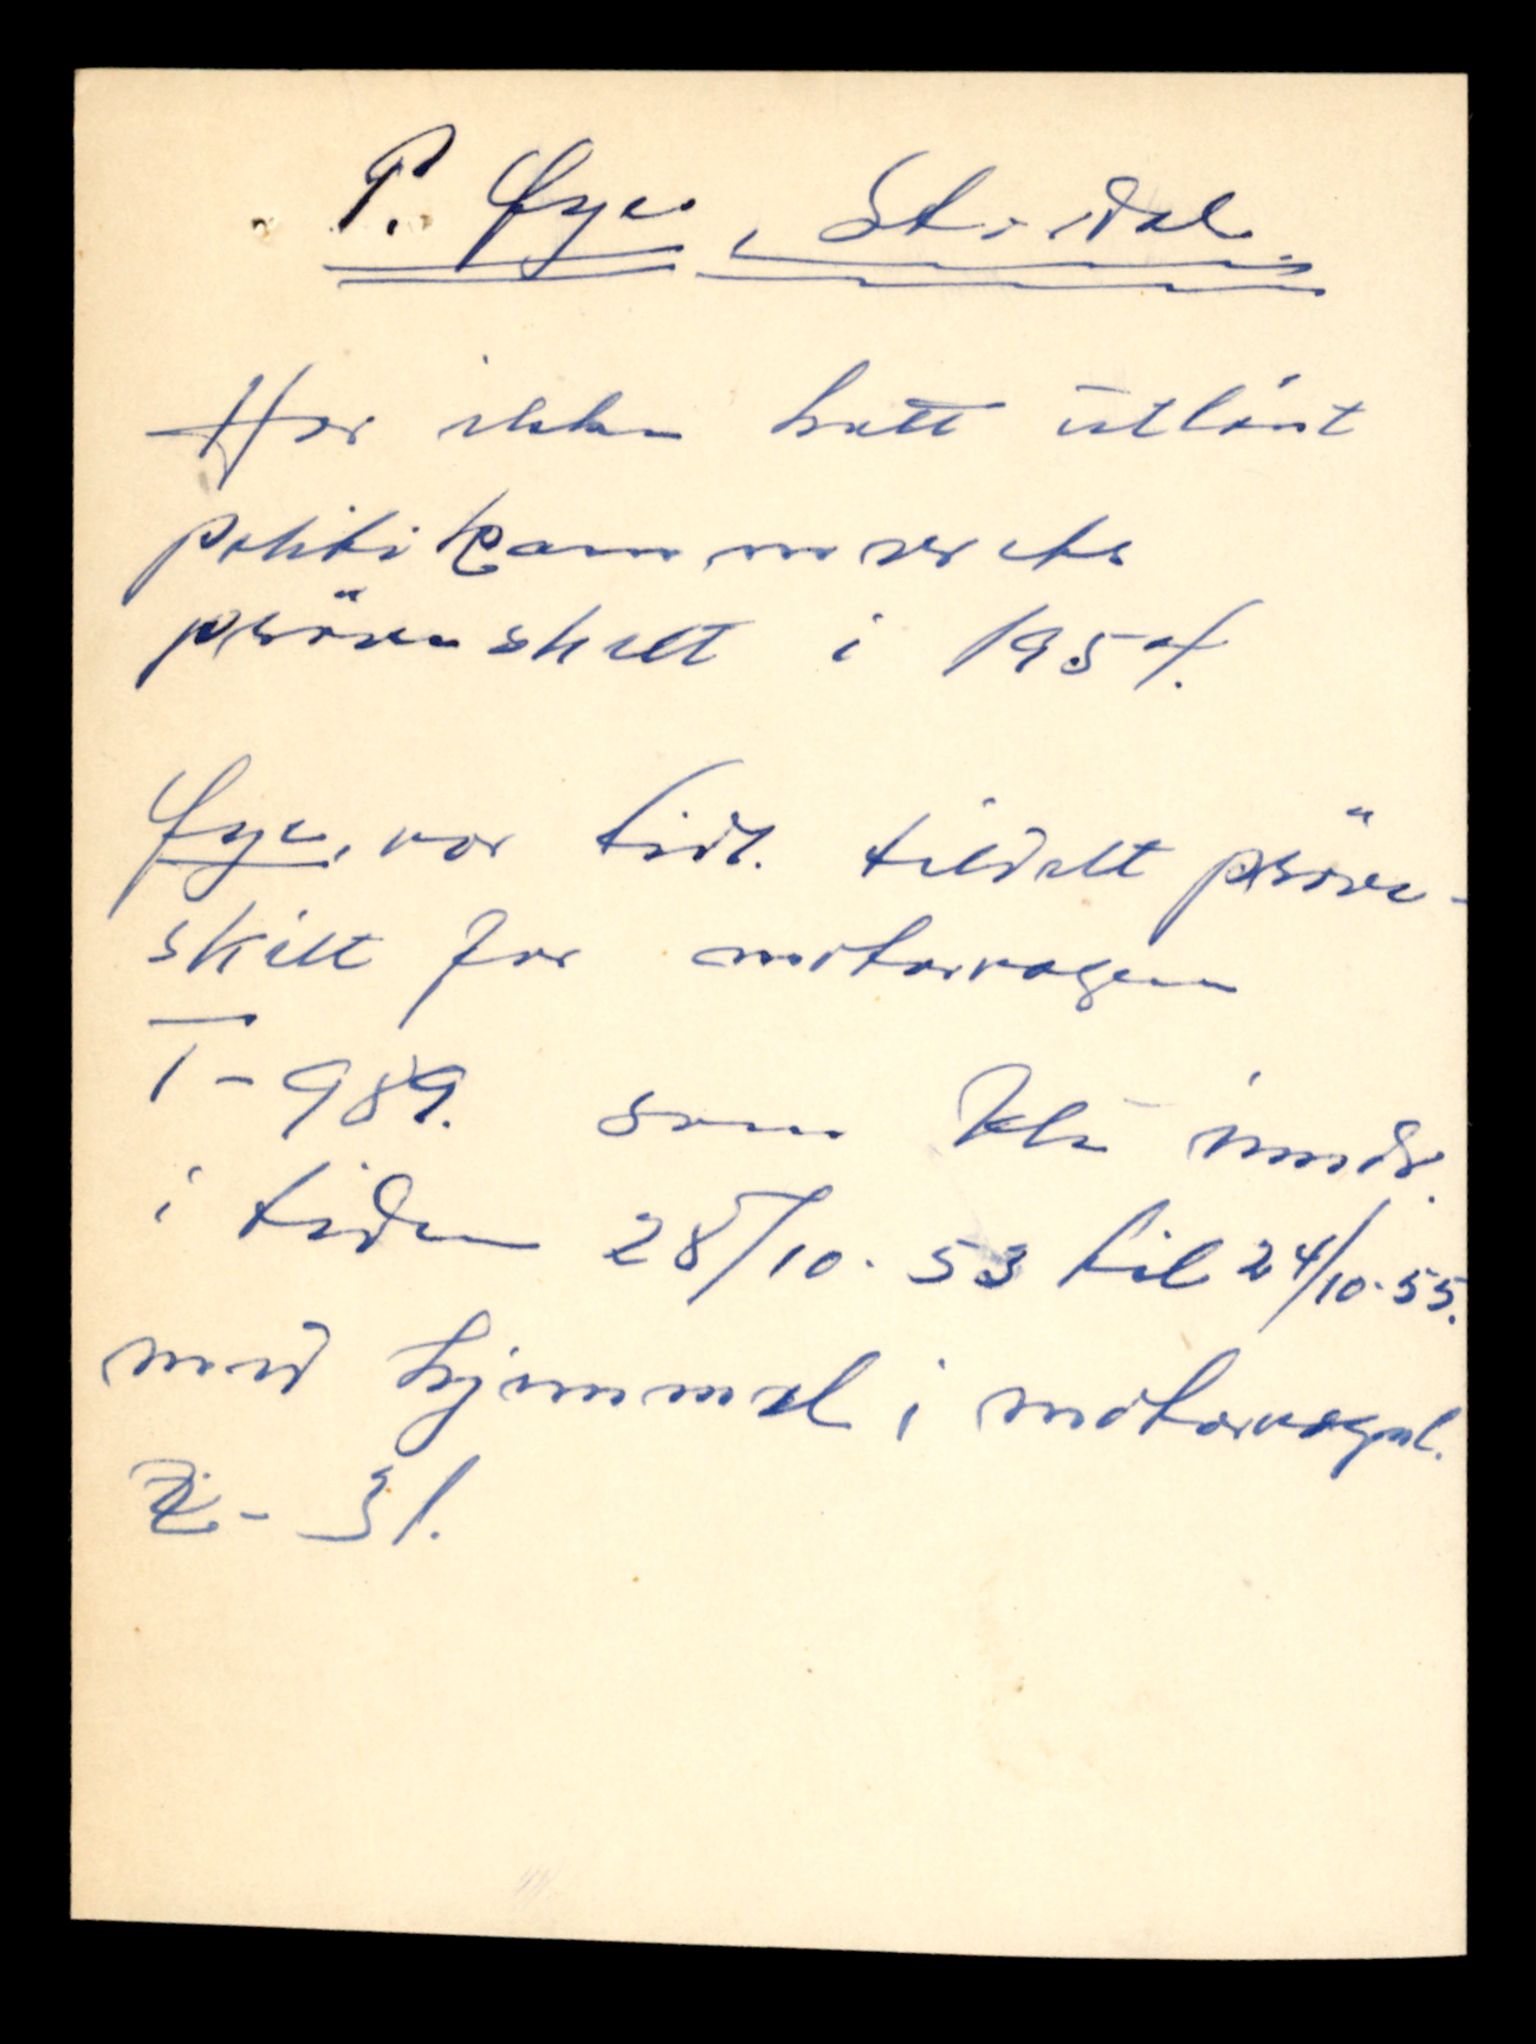 P. Øye, Stordal.
Har ikke hatt utlånt
politikammerets
pröveskilt i 1954.
Øye, var tidl. tildelt pröve-
skilt for motorvogn
T-989. som ble inndr.
i tiden 28/10.53 til 24/10.55.
med hjemmel i motorvognl.
§ - 31.